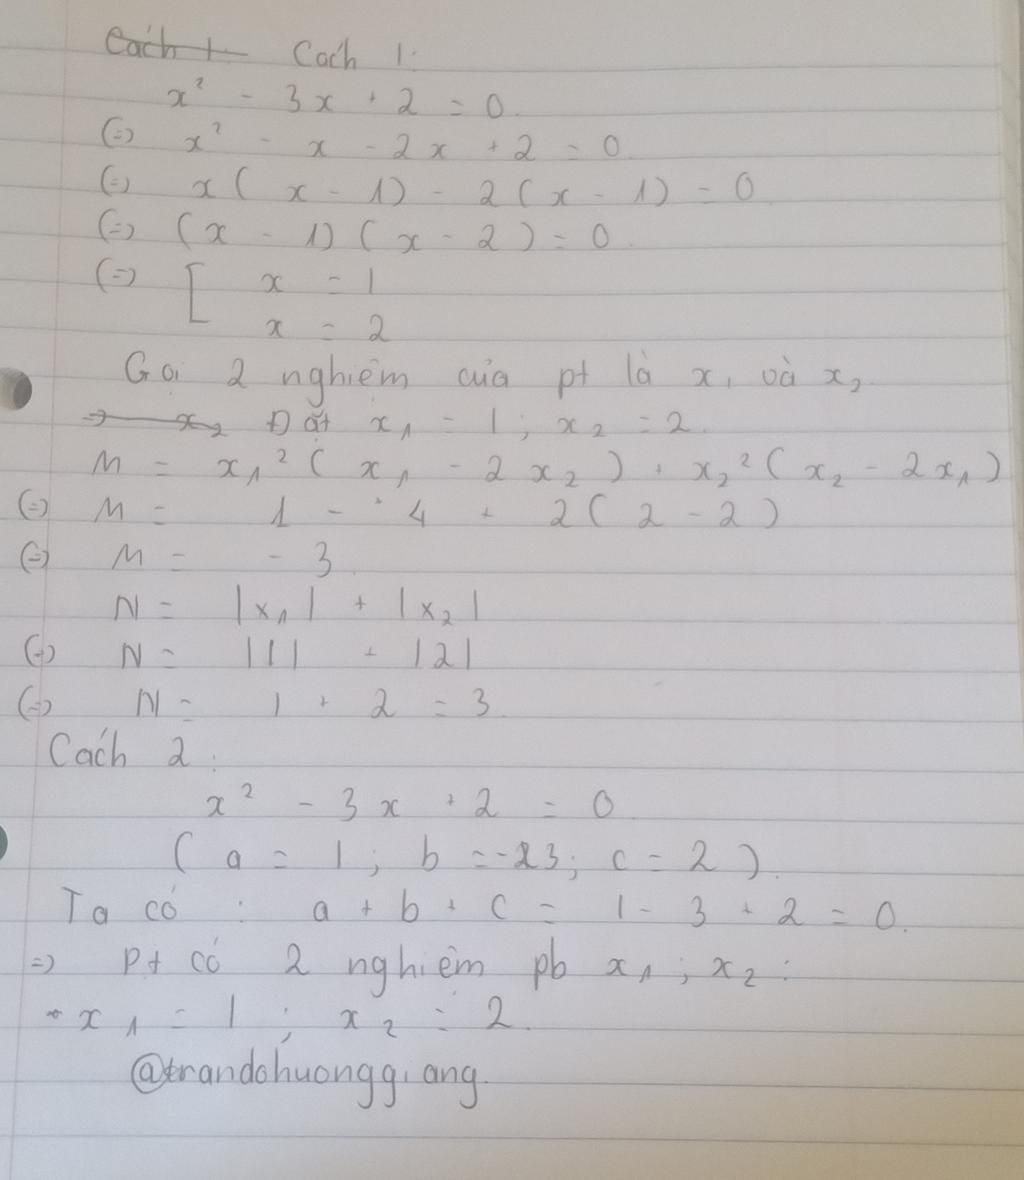 Cách 1:
x² - 3x + 2 = 0.
(=) x² - x - 2x + 2 = 0.
(=) x(x - 1) - 2(x - 1) = 0
(=) (x - 1)(x - 2) = 0.
(=) [ x = 1
x = 2
Gọi 2 nghiệm của pt là x₁ và x₂.
Đặt x₁ = 1; x₂ = 2.
M = x₁²(x₁ - 2x₂) + x₂²(x₂ - 2x₁)
(=) M = 1 - 4 + 2(2 - 2)
(=) M = -3
N = |x₁| + |x₂|
(=) N = |1| + |2|
(=) N = 1 + 2 = 3.
Cách 2:
x² - 3x + 2 = 0
(a = 1; b = -3; c = 2).
Ta có: a + b + c = 1 - 3 + 2 = 0.
=> Pt có 2 nghiệm pb x₁; x₂:
x₁ = 1; x₂ = 2.
@trandohuonggiang.